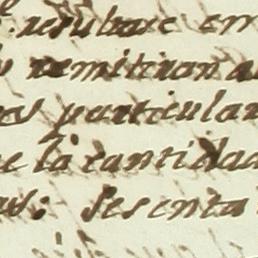 resultare en
remitiran a
particular
e la cantidad
as: Sesenta